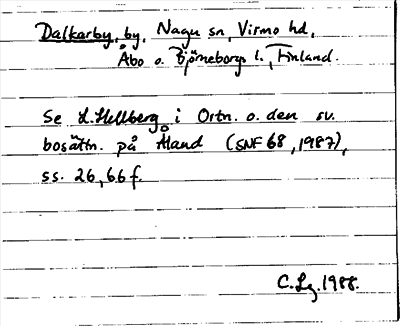 Dalkarby, by, Nagu sn, Virmo hd,
Åbo o. Björneborgs l., Finland.
Se L. Hellberg i Ortn. o. den sv.
bosättn. på Åland (SNF 68, 1987),
ss. 26, 66 f.
C. Lg. 1988.